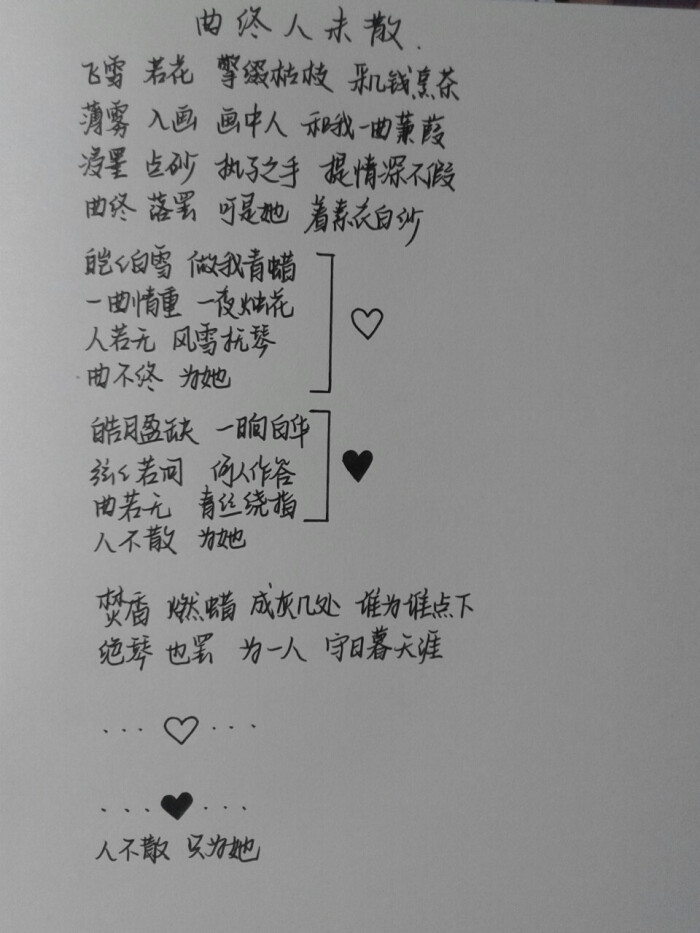 曲终人未散.
飞雪 若花 擎缀枯枝 采几钱烹茶
薄雾 入画 画中人 和我一曲蒹葭
浸墨 点砂 执子之手 提情深不假
曲终 落罢 可是她 着素衣白纱
皑皑白雪 做我青蜡
一曲情重 一夜烛花
人若无 风雪抚琴
曲不终 为她
皓月盈缺 一日向白华
弦弦若问 何人作答
曲若无 青丝绕指
人不散 为她
焚香 燃蜡 成灰几处 谁为谁点下
绝琴 也罢 为一人 守日暮天涯
... ♡ ...
... ♥ ...
人不散 只为她